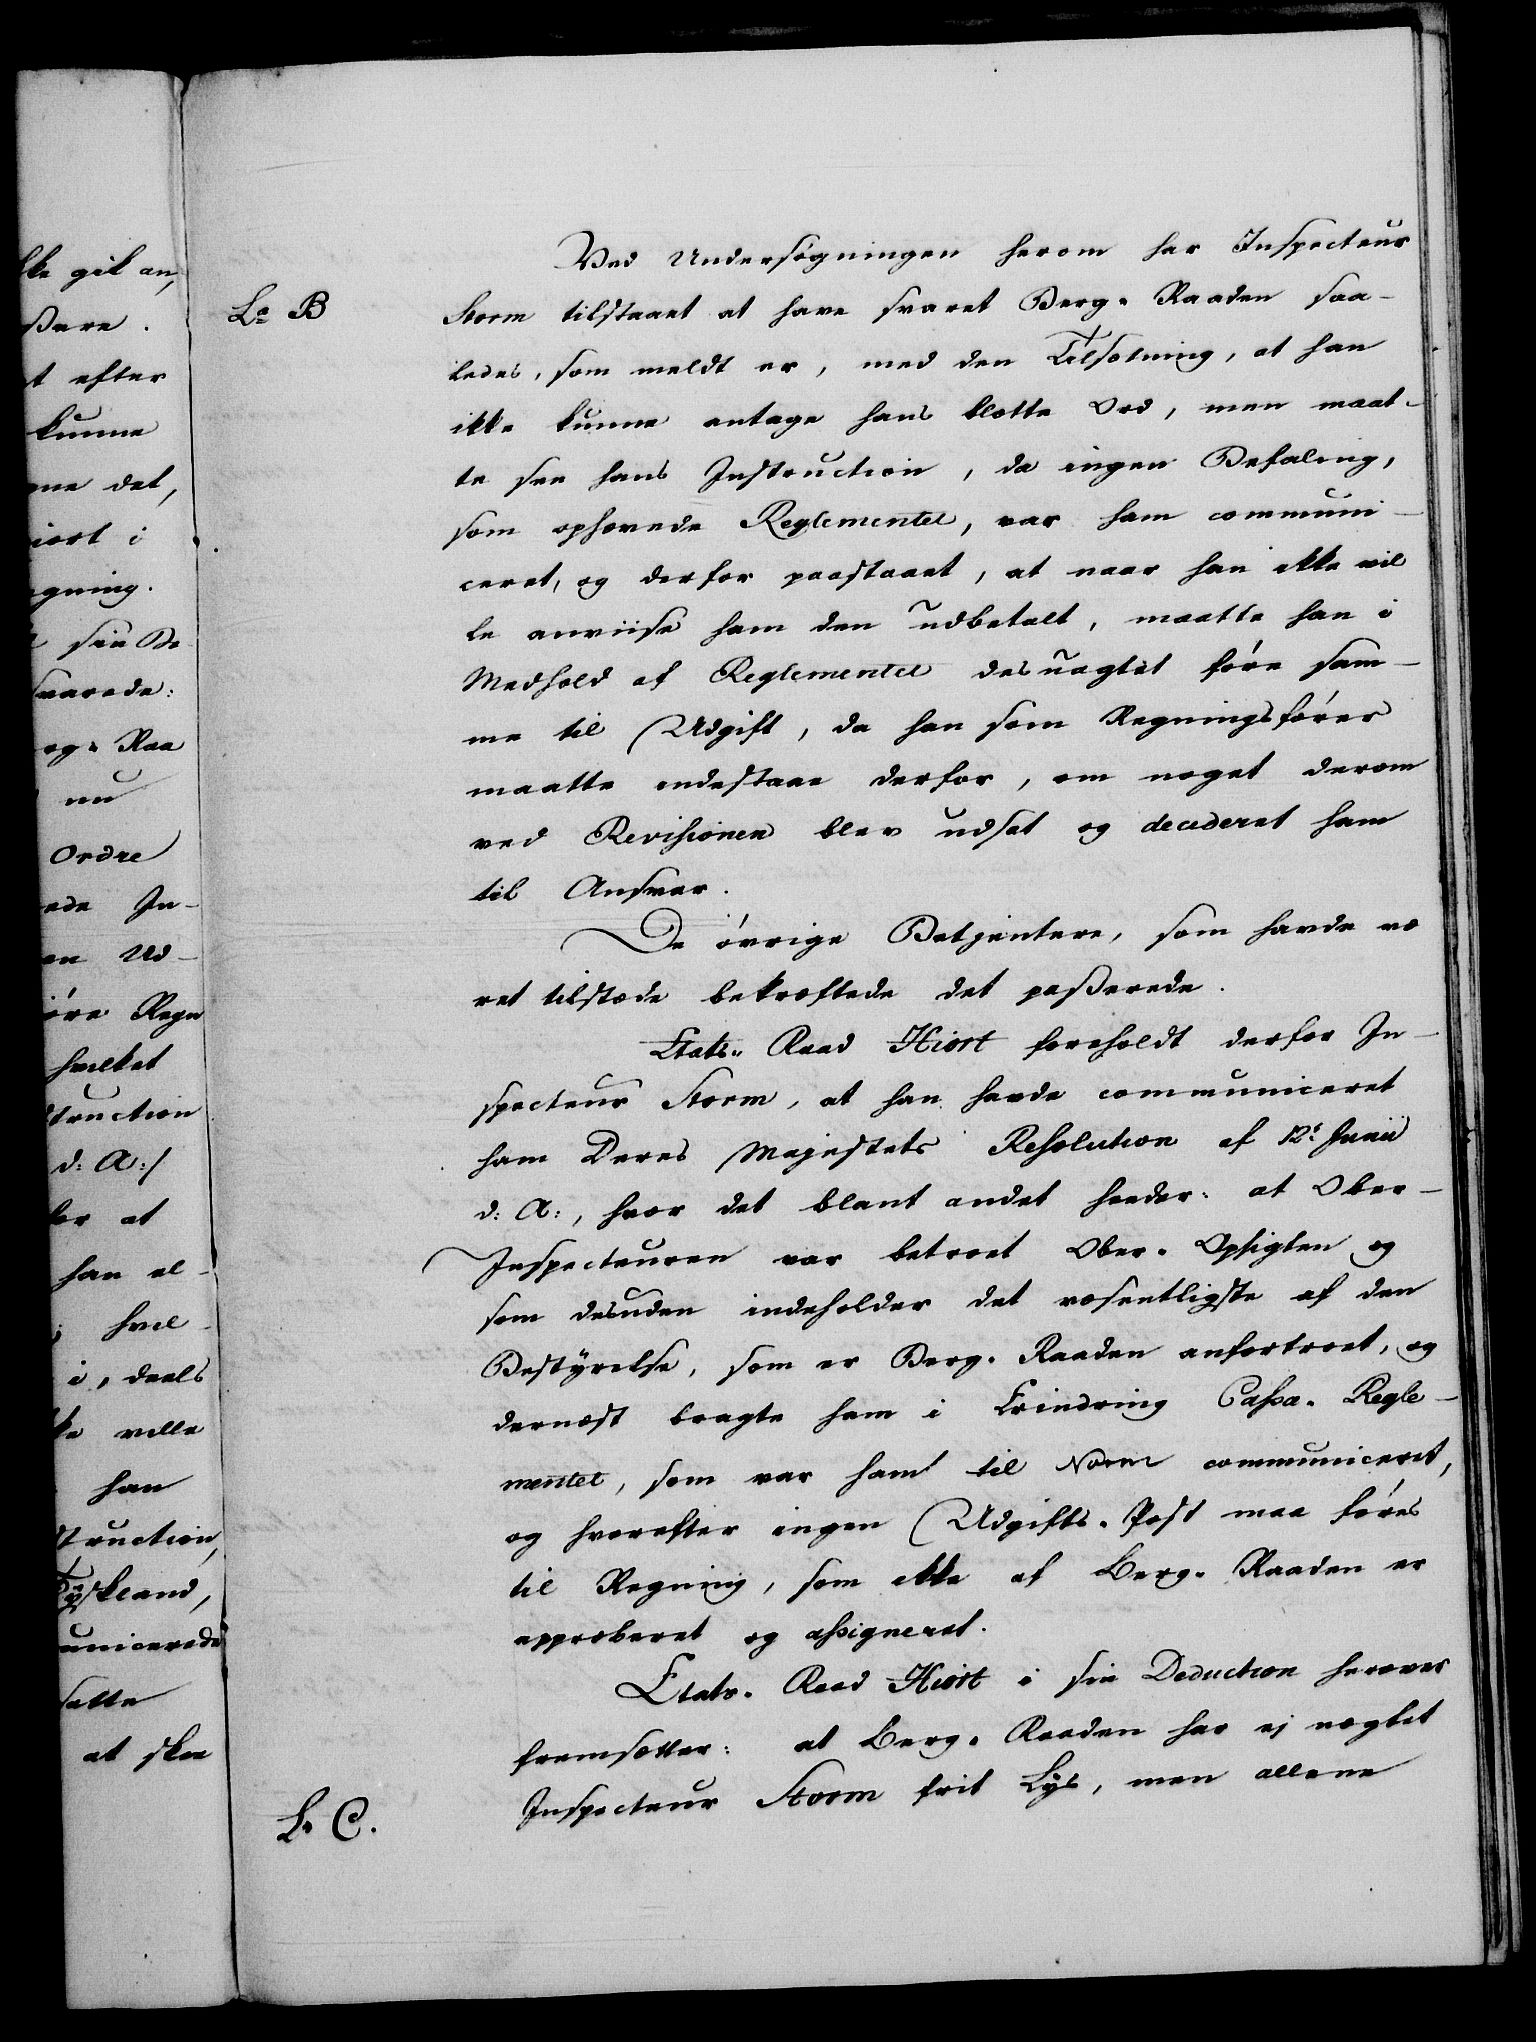 ke gik an,
ßere.
t efter
kunne
ne det,
iort i
gning.
sin Be
svarede:
og Raa
nu
Ordre
ede In-
en Ud-
øre Regn
hvilket
struction
d: A:/
for at
han el-
hvil-
i, deels
ke ville
han
struction,
Tÿskland,
unicerede
satte
at skee
Ved Undersøgningen herom har Inspecteur
La B
Storm tilstaaet at have svaret Berg-Raaden saa-
ledes, som meldt er, med den Tilsætning, at han
ikke kunne antage hans blotte Ord, men maat-
te see hans Instruction, da ingen Befaling,
som ophævede Reglementet, var ham communi-
ceret, og derfor paastaaet, at naar han ikke vil
le anviise ham den udbetalt, maatte han i
Medhold af Reglementet desuagtet føre sam-
me til Udgift, da han som Regningsfører
maatte indestaae derfor, om noget derom
ved Revisionen blev udsat og decideret ham
til Ansvar.
De øvrige Betjentere, som havde væ
ret tilstæde bekræftede det paßerede.
Etats-Raad Hiort foreholdt derfor In-
specteur Storm, at han havde communiceret
ham Deres Majestets Resolution af 12t Junii
d: A:, hvor det blant andet heeder: at Ober-
Inspecteuren var betroet Ober-Opsigten og
som desuden indeholder det væsentligste af den
Bestÿrelse, som er Berg-Raaden anfortroet, og
dernæst bragte ham i Erindring Cassa-Regle-
mentet, som var ham til Norm communiceret,
og hvorefter ingen Udgifts-Post maa føres
til Regning, som ikke af Berg-Raaden er
approberet og assigneret.
Etats-Raad Hiort i sin Deduction herover
fremsætter: at Berg-Raaden har ej nægtet
L. C.
Inspecteur Storm frit Lÿs, men allene